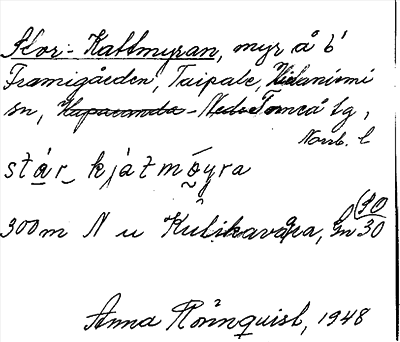 Stor-Kattmyran, myr å b'
Framigården, Taipale, Hietaniemi
sn, Haparanda - Neder Torneå tg,
Norrb. l
stár_ kjàtmóyra
300m N u Kulikavaara, Gn 30
Anna Rönnquist, 1948